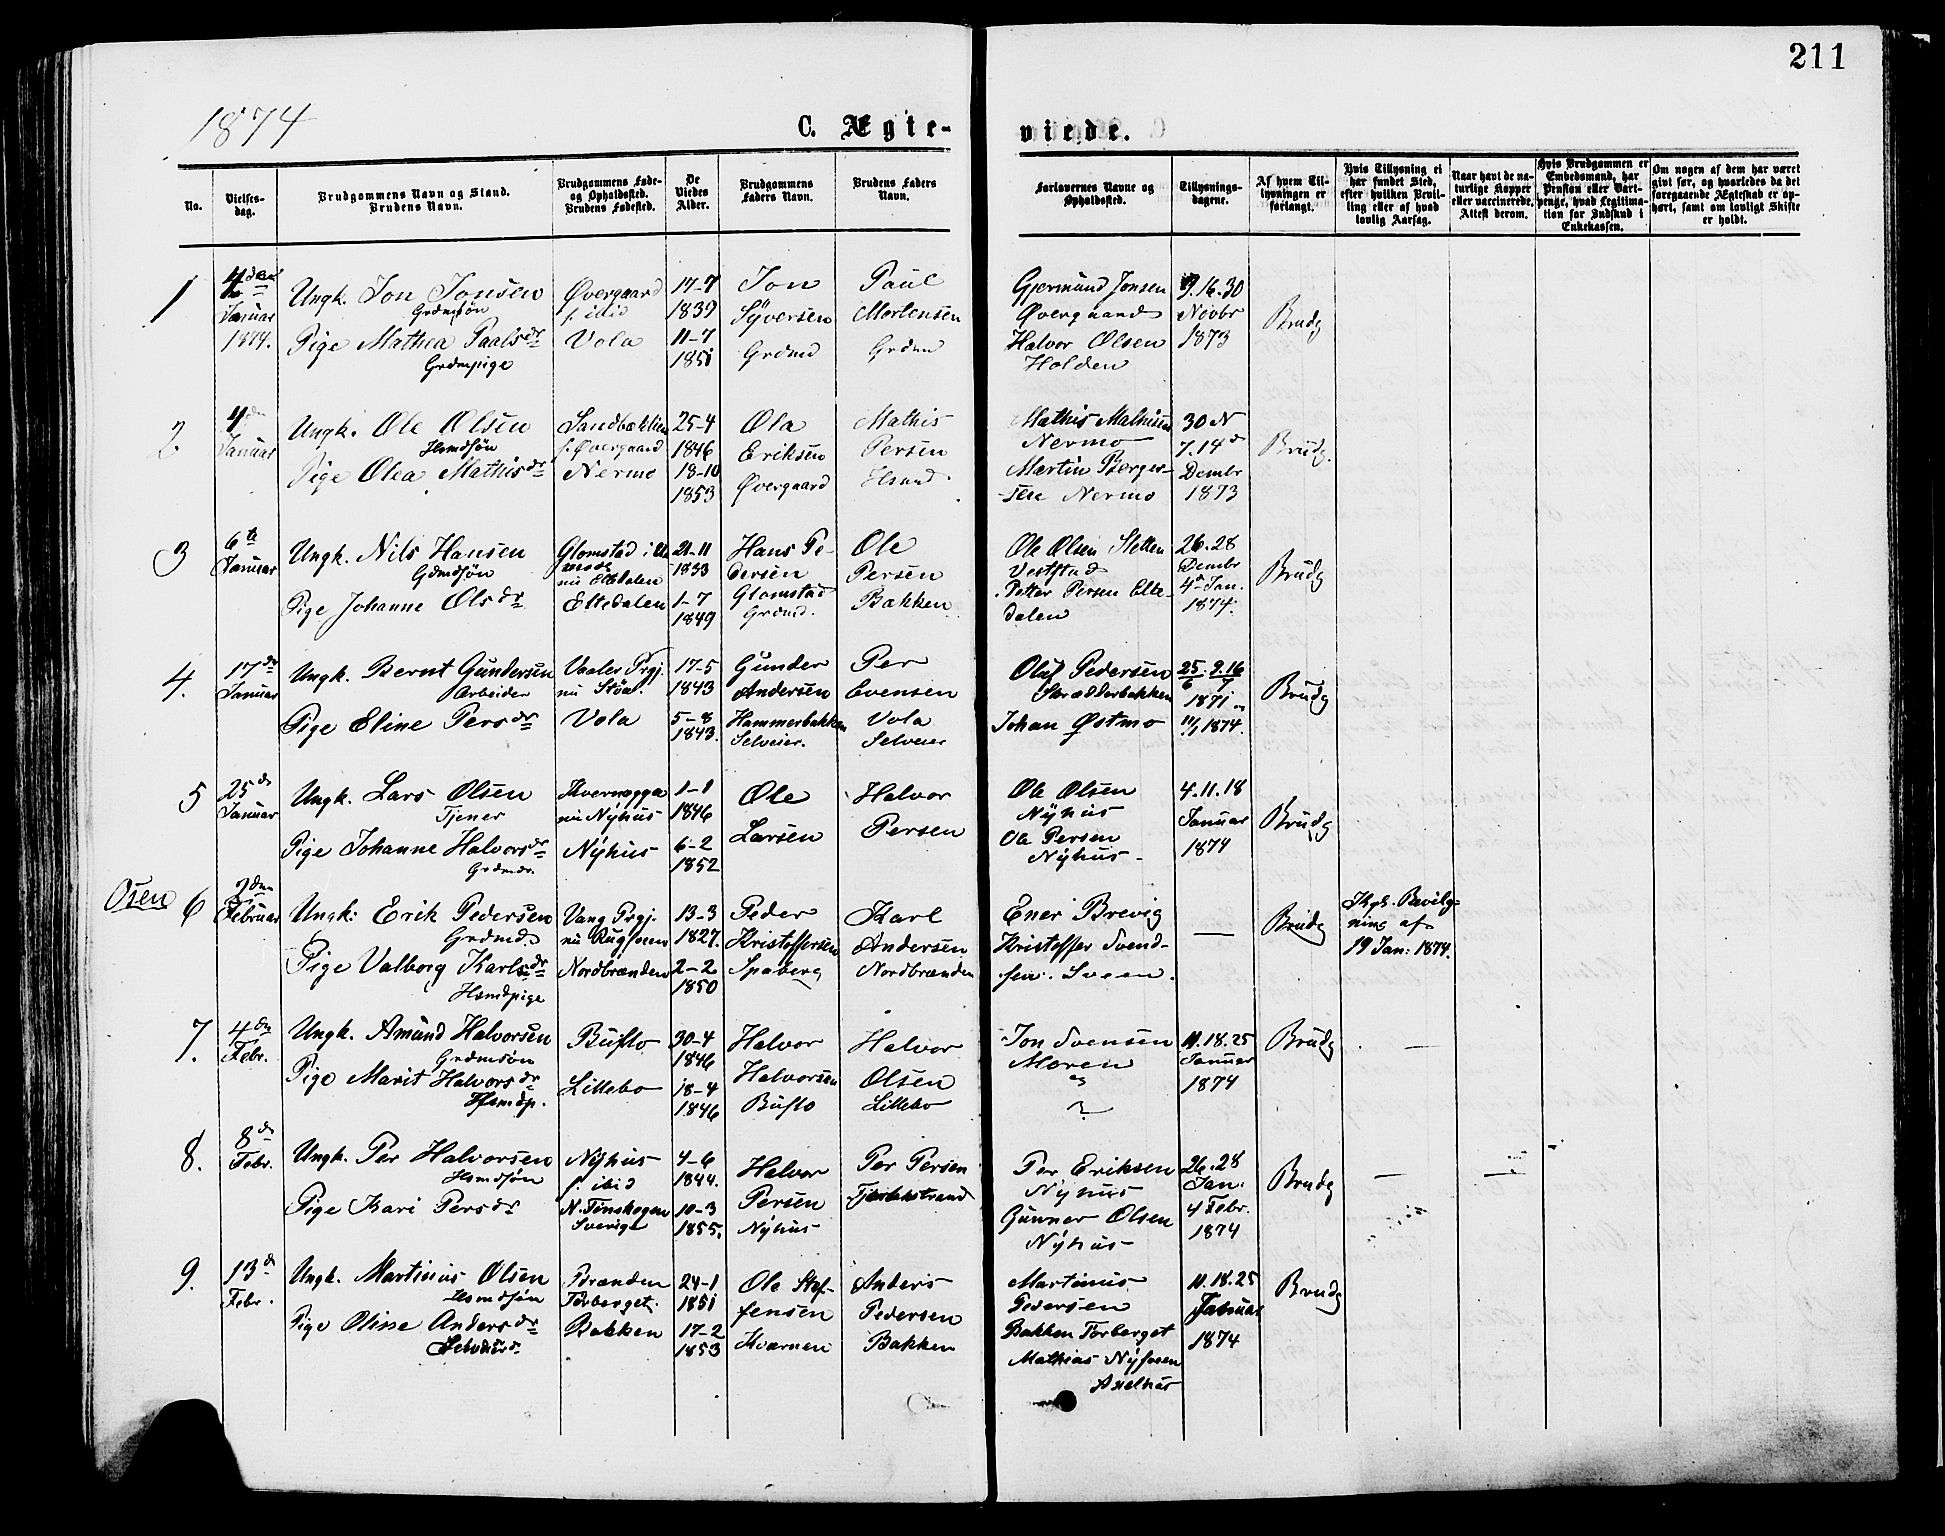 211
1874
C. Ægte-
viede.
No.
Vielses-
dag.
Brudgommens Navn og Stand.
Brudens Navn.
Brudgommens Føde-
og Opholdssted.
Brudens Fødested.
De
Viedes
Alder.
Brudgommens
Faders Navn.
Brudens Faders
Navn.
Forlovernes Navne og
Opholdssted.
Tillysnings-
dagene.
Af hvem Til-
lysningen er
forlangt.
Hvis Tillysning ei
har fundet Sted,
efter hvilken Bevil-
ling eller af hvad
lovlig Aarsag.
Naar havt de na-
turlige Kopper
eller vaccinerede.
Attest derom.
Hvis Brudgommen er
Embedsmand, har
Pension eller Vart-
penge, hvad Legitima-
tion for Indskud i
Enkekassen.
Om nogen af dem har været
gift før, og hvorledes da det
foregaaende Ægteskab er op-
hørt, samt om lovligt Skifte
er holdt.
1
4den
Januar
1874.
Ungk. Jon Jonsen
Grdmsøn
Pige Mathea Paalsdr
Grdmpige
Øvergaard
f. ibid
Vola
17-7
1839
11-7
1851
Jon
Syversen
Grdmd
Paul
Mortensen
Grdm
Gjermund Jonsen
Øvergaard
Halvor Olsen
Holden
9.16.30
Novbr
1873
Brudg
2
4de
Januar
Ungk. Ole Olsen
Hsmdsøn
Pige Olea Mathisdr
Sandbæklien
f. Øvergaard
Nermo
25-4
1846
18-10
1853
Ola
Eriksen
Øvergaard
Mathis
Persen
Hsmd
Mathis Mathisen
Nermo
Martin Berger-
sen Nermo
30 N
7.14 d
Dembr
1873
Brudg.
3
6te
Januar
Ungk. Nils Hansen
Gdmdsøn
Pige Johanne Olsdr
Glomstad i
nu Eltedalen
Eltedalen
21-11
1833
1-7
1849
Hans Pe-
dersen
Glomstad
Grdmd.
Ole
Persen
Bakken
Ole Olsen Sletten
Vestстad
Petter Persen Elte-
dalen
26.28
Dembr
4d Jan.
1874.
Brudg
4.
17de
Januar
Ungk. Bernt Gundersen
Arbeider
Pige Eline Persdr
Vaaler Prgj.
nu Støa.
Vola
17-5
1843
5-8
1843.
Gunder
Andersen
Hammerbakken
Selveier.
Per
Evensen
Vola
Selveier
Oluf Pedersen
Skrædderbakken
Johan Østmo
25/6. 2.16/7
1871 og
11/1 1874.
Brudg
5
25de
Januar
Ungk. Lars Olsen
Tjener
Pige Johanne Halvorsdr
Grdmdr.
Kvernægga
nu Nyhus
Nyhus
1-1
1846
6-2
1852
Ole
Larsen
Halvor
Persen
Ole Olsen
Nyhus
Ole Persen
Nyhus
4.11.18
Januar
1874
Brudg
Osen
6
2den
Februar
Ungk: Erik Pedersen
Grdmd.
Pige Valborg Karlsdr
Hsmdpige
Vang Prgj.
nu Rugsveen
Nordbrænden
13-3
1827.
2-2
1850
Peder
Kristoffersen
Spaberg
Karl
Andersen
Nordbrænden
Ener Brevig
Kristoffer Svend-
sen. Sveen.
—
Brudg
Kgl. Bevilg-
ning af
19 Jan: 1874.
7.
4de
Febr.
Ungk. Amund Halvorsen
Grdmsøn
Pige Marit Halvorsdr
Hsmdp.
Buflo
Lillebo
30-4
1846
18-4
1846
Halvor
Halvorsen
Buflo
Halvor
Olsen
Lillebo
Jon Svensen
Moren
11.18.25
Januar
1874
Brudg
—
8.
8de
Febr.
Ungk. Per Halvorsen
Hsmdsøn
Pige Kari Persdr
Nyhus
f. ibid
N. Finskogen
Sverige
4-6
1844.
10-3
1855.
Halvor
Persen
Nyhus
Per Persen
Per Eriksen
Nyhus
Gunner Olsen
Nyhus
26.28
Jan.
4 Febr.
1874
Brudg
—
—
9.
13de
Febr.
Ungk. Martinus Olsen
Hsmdsøn
Pige Olisse Andersdr
Brænden
Torberget.
Bakken
24-1
1851
17-2
1853
Ole Stef-
fensen
Kværnen
Anders
Pedersen
Bakken
Martinus
Pedersen
Bakken Torberget
Mathias
11.18.25
Januar
1874
Brudg